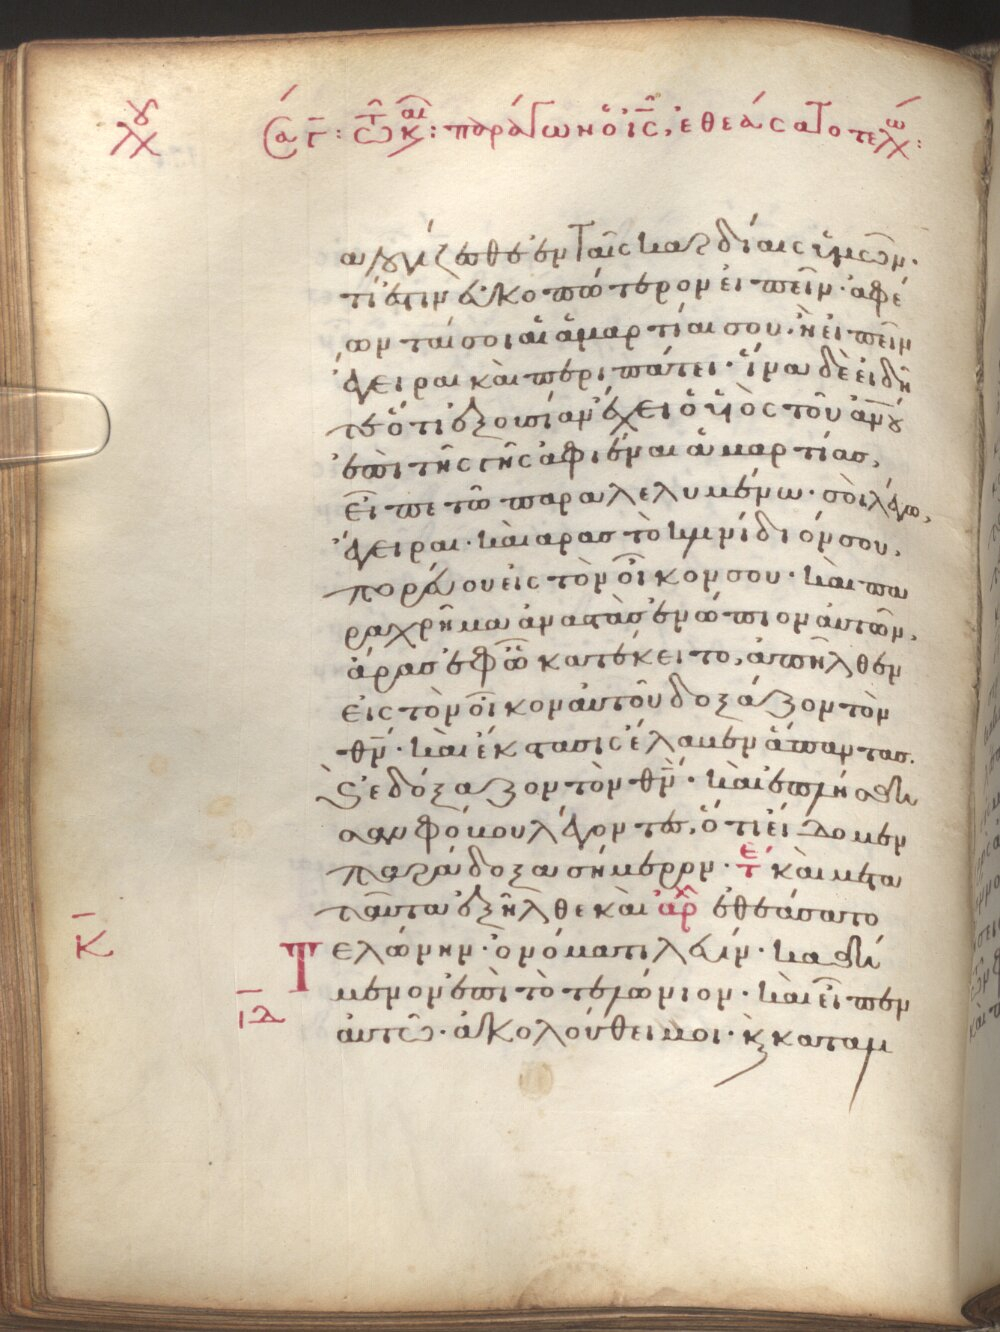 Σα γ: τῶ καιρ: παράγων ὁ ις, ἐθεάσατο τελώ:
λογίζεσθε ἐν ταῖς καρδίαις ὑμῶν·
τί ἐστιν εὐκοπώτερον εἰπεῖν· ἀφέ
ωνταί σοι αἱ ἁμαρτίαι σου· ἢ εἰπεῖν
ἔγειραι καὶ περιπάτει· ἵνα δὲ εἰδῆ
τε ὅτι ἐξουσίαν ἔχει ὁ υἱὸς τοῦ ἀνου
ἐπὶ τῆς γῆς ἀφιέναι ἁμαρτίας,
εἶπε τῶ παραλελυμένω· σοὶ λέγω,
ἔγειραι· καὶ άρας τὸ κλινίδιόν σου,
πορεύου εἰς τὸν οἶκον σου· καὶ πα
ραχρῆμα ἀναστὰς ἐνώπιον αὐτῶν,
ἄρας ἐφ ῶ κατέκειτο, ἀπῆλθεν
εἰς τὸν οἶκον αὐτοῦ δοξάζων τὸν
θν· καὶ ἔκστασις ἔλαβεν ἅπαντας.
καὶ ἐδόξαζον τὸν θν· καὶ ἐπλήσθη
σαν φόβου λέγοντες, ὅτι εἴδομεν
παράδοξα σήμερον· τε καὶ μετα
ταῦτα ἐξῆλθε καὶ ἀρχ ἐθεάσατο
κ
Τελώνην· ὀνόματι λευίν· καθή
μενον ἐπὶ τὸ τελώνιον· καὶ εἶπεν
ιδ
αὐτῶ· ἀκολούθει μοι· καὶ καταλι